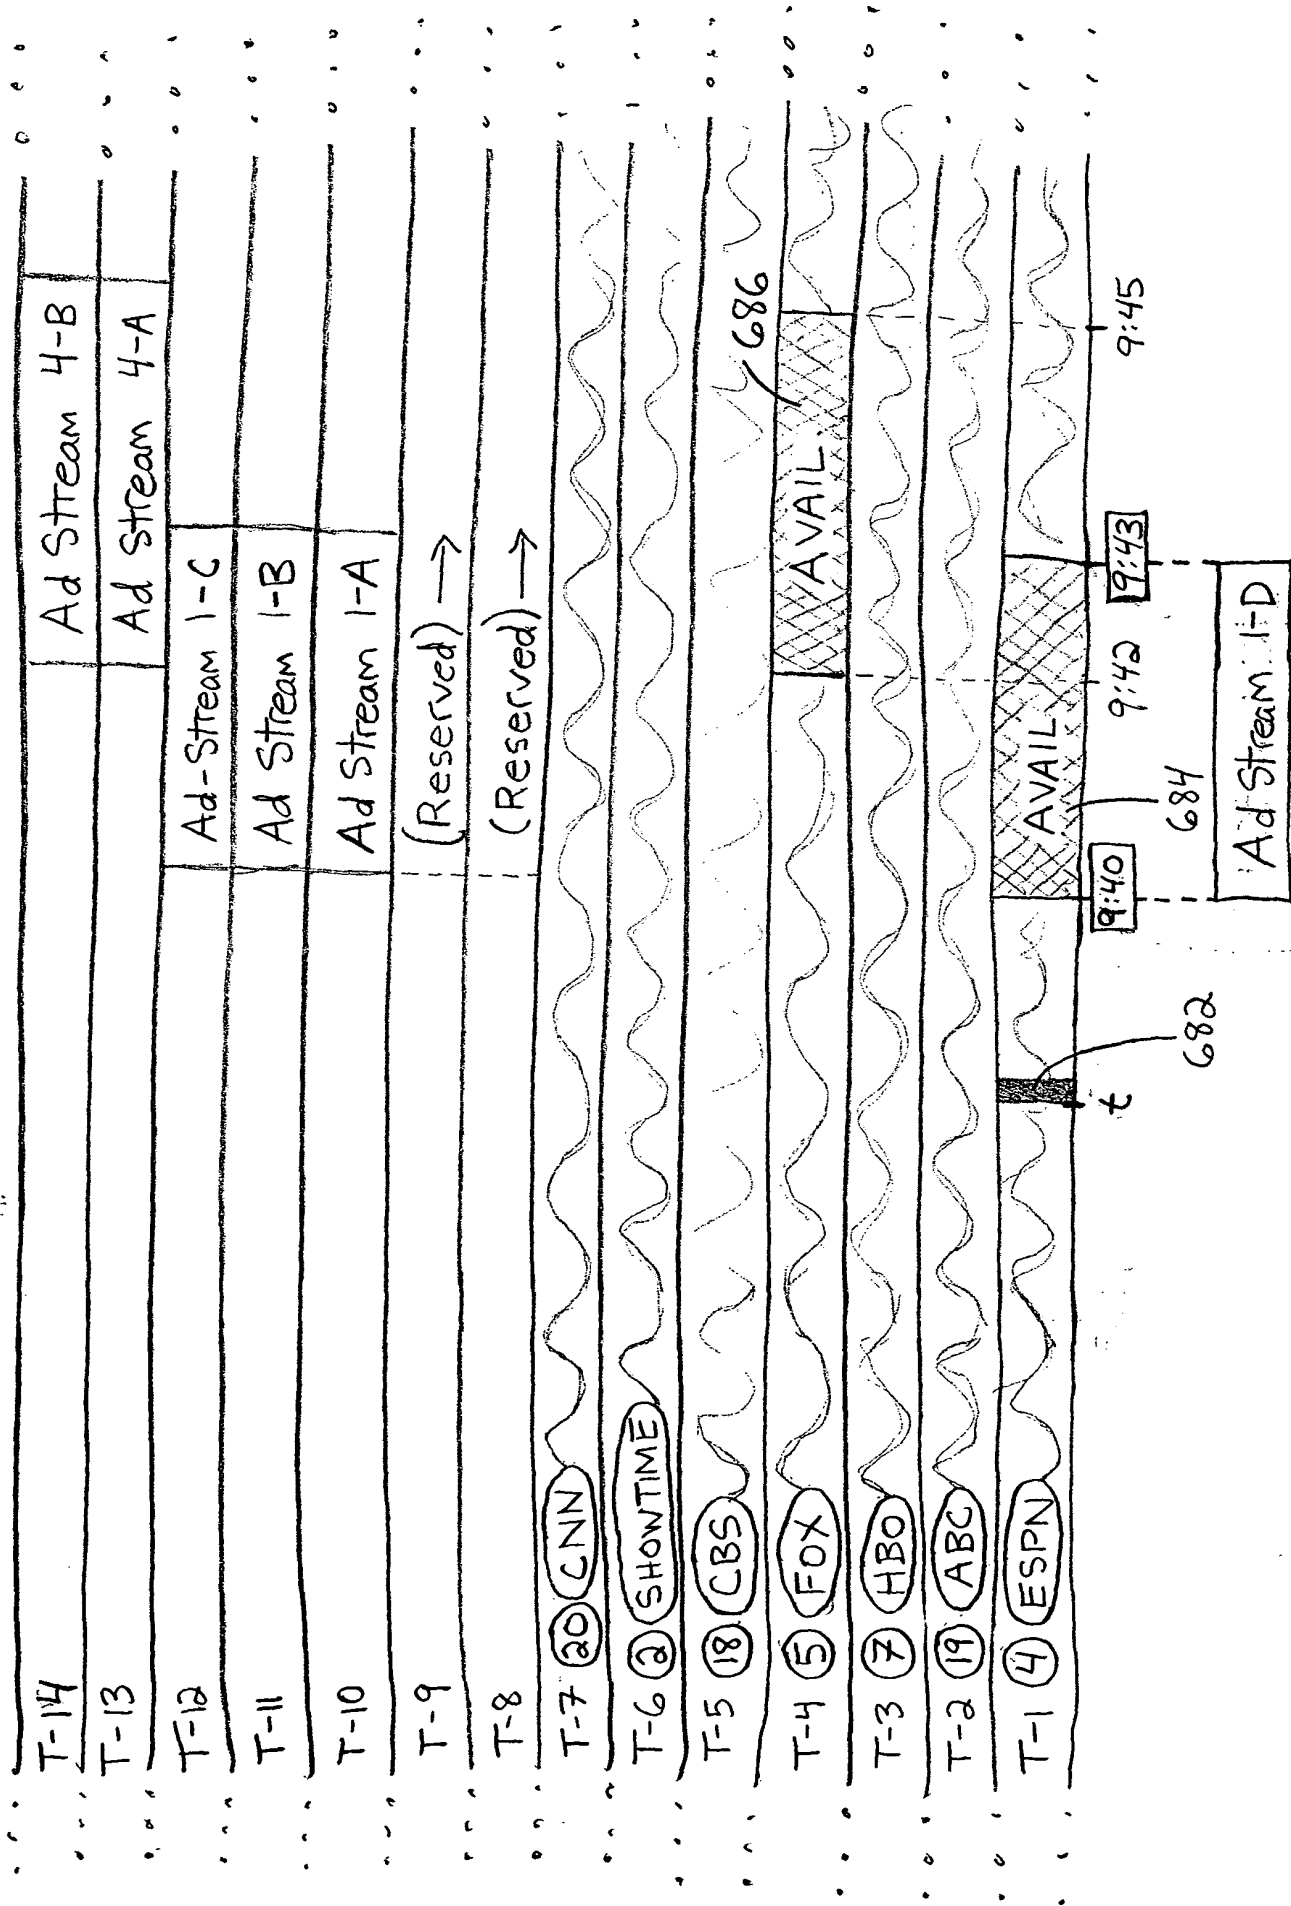 T-14 Ad Stream 4-B
T-13 Ad Stream 4-A
T-12 Ad-Stream 1-C
T-11 Ad Stream 1-B
T-10 Ad Stream 1-A
T-9 (Reserved) →
T-8 (Reserved) →
T-7 20 CNN
T-6 2 SHOWTIME
T-5 18 CBS
686
T-4 5 FOX AVAIL.
T-3 7 HBO
T-2 19 ABC
T-1 4 ESPN AVAIL
t 9:40 9:42 9:43 9:45
682 684
Ad Stream 1-D